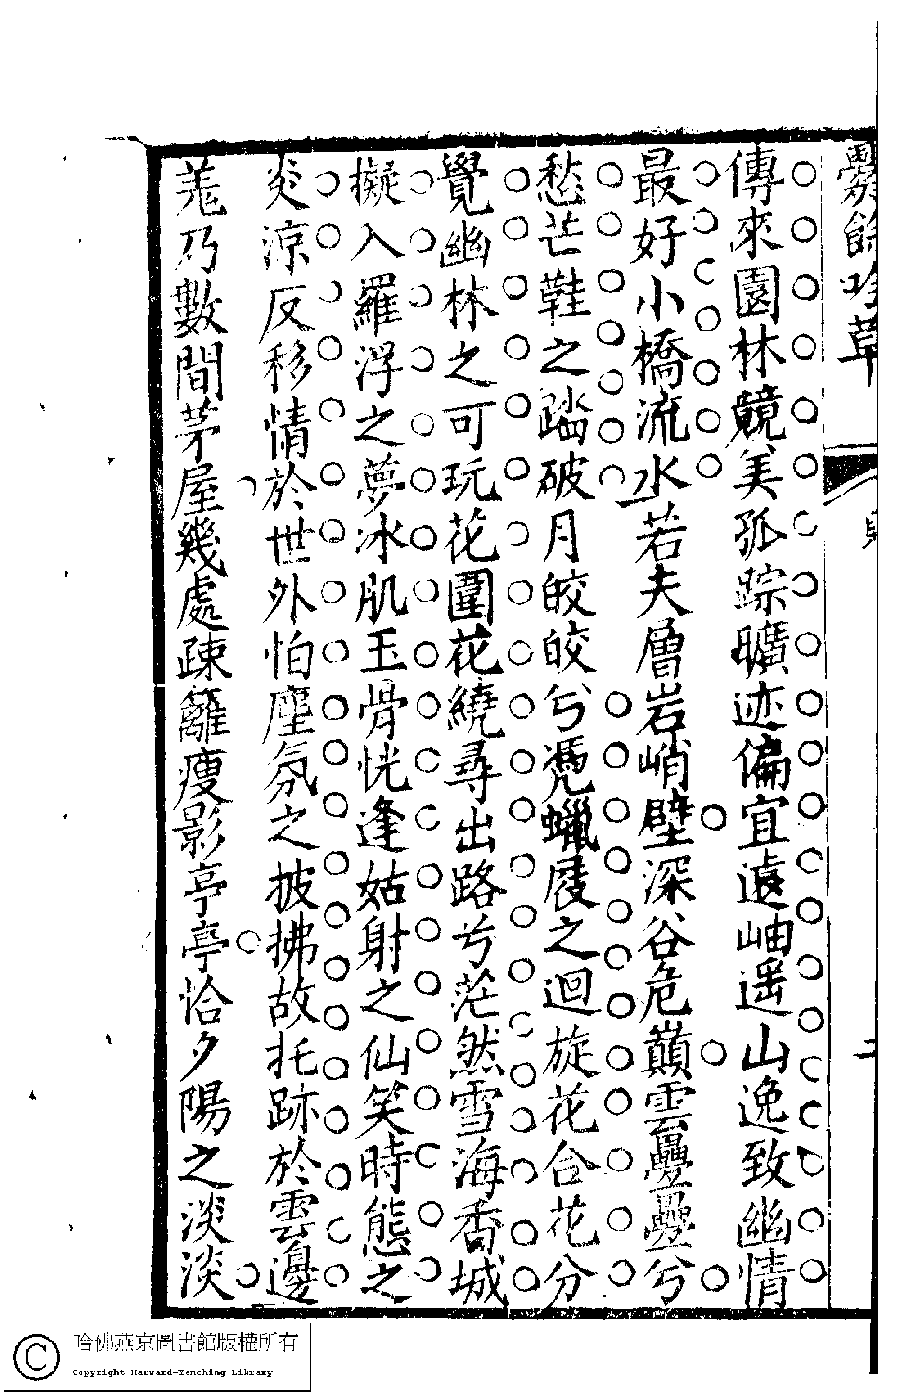 爨餘吟草
傳來園林競美孤踪曠迹偏宜遠岫遥山逸致幽情
最好小橋流水若夫層岩峭壁深谷危巔雲疊疊兮
愁芒鞋之踏破月皎皎兮凴蠟屐之迴旋花合花分
覺幽林之可玩花圍花繞尋出路兮茫然雪海香城
擬入羅浮之夢冰肌玉骨恍逢姑射之仙笑時態之
炎涼反移情於世外怕塵氛之披拂故托跡於雲邊
羗乃數間茅屋幾處疎籬瘦影亭亭恰夕陽之淡淡
哈佛燕京圖書館版權所有
Copyright Harvard-Yenching Library